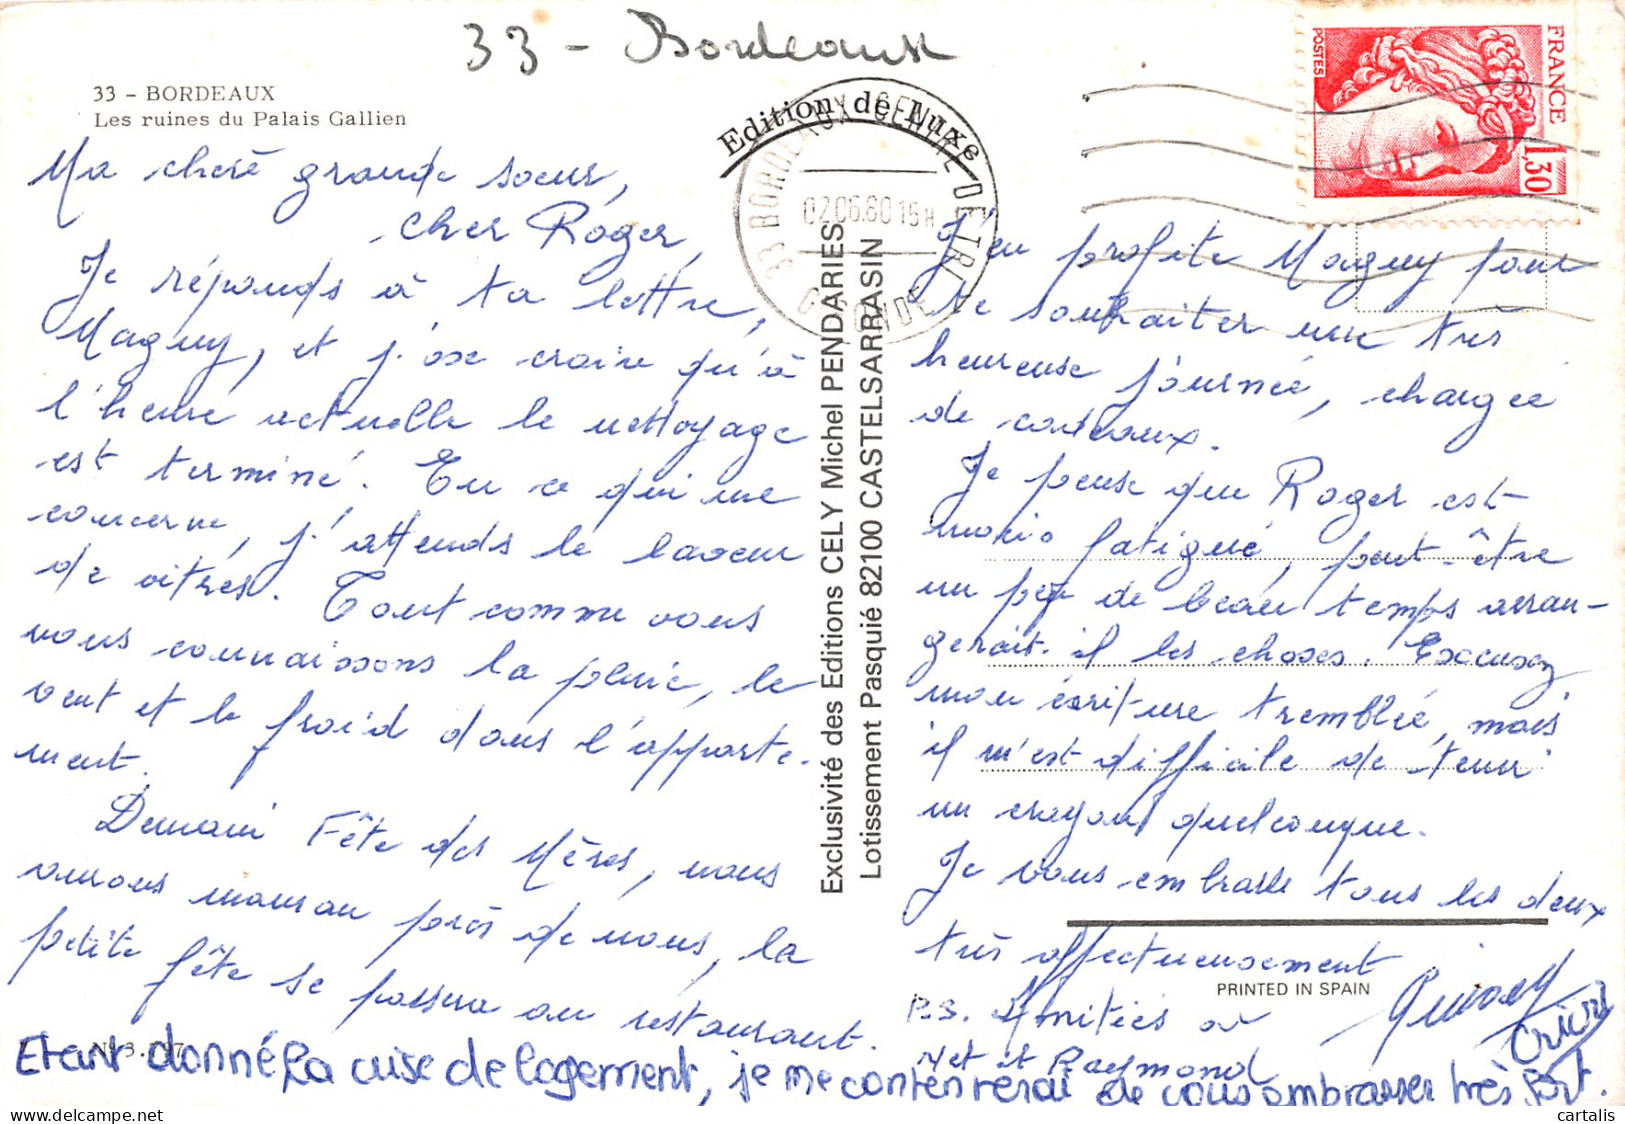 33 - Bordeaux
33 - BORDEAUX
Les ruines du Palais Gallien
Edition de Luxe
33 BORDEAUX CENTRE DE TRI
02.06.80 15H
GIRONDE
FRANCE
POSTES
1,30
Ma chère grande soeur,
cher Roger,
Je réponds à ta lettre,
Maguy, et j'ose croire qu'à
l'heure actuelle le nettoyage
est terminé. En ce qui me
concerne, j'attends le laveur
de vitres. Tout comme vous
nous connaissons la pluie, le
vent et le froid dans l'apparte-
ment.
Demain Fête des Mères, nous
aurons maman près de nous, la
petite fête se passera au restaurant.
Exclusivité des Editions CELY Michel PENDARIES
Lotissement Pasquié 82100 CASTELSARRASIN
J'en profite Maguy pour
te souhaiter une très
heureuse journée, chargée
de cadeaux.
Je pense que Roger est
moins fatigué, peut-être
un peu de beau temps arran-
gerait-il les choses. Excusez
mon écriture tremblée, mais
il m'est difficile de tenir
un crayon quelconque.
Je vous embrasse tous les deux
très affectueusement
PRINTED IN SPAIN
P.S. Amitiés à
et Raymond
N° 3.
Etant donné la crise de logement, je me contenterai de vous embrasser très fort.
cartalis